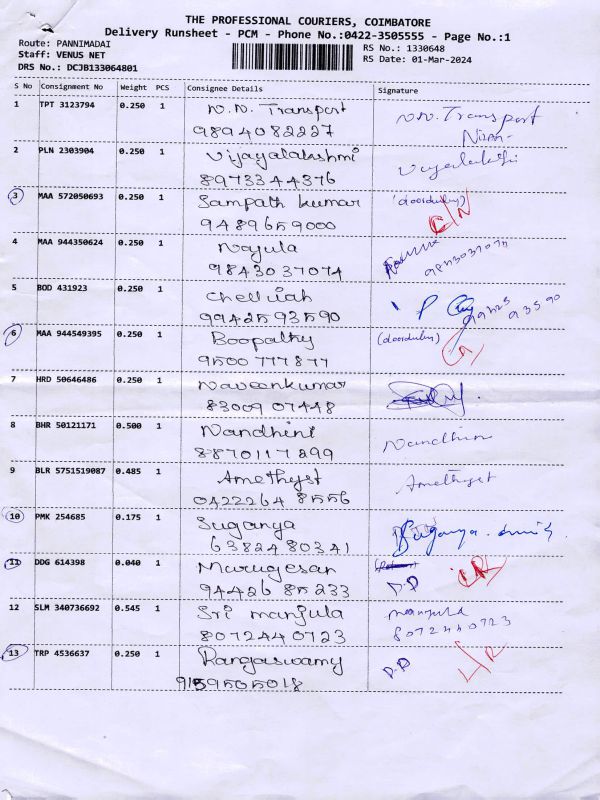 THE PROFESSIONAL COURIERS, COIMBATORE
Delivery Runsheet - PCM - Phone No.:0422-3505555 - Page No.:1
Route: PANNIMADAI
RS No.: 1330648
Staff: VENUS NET
RS Date: 01-Mar-2024
DRS No.: DCJB133064801
S No Consignment No Weight PCS Consignee Details Signature
1 TPT 3123794 0.250 1 N.N. Transport N.N. Transport
9894082227
2 PLN 2303904 0.250 1 Vijayalakshmi
8973344376
3 MAA 572050693 0.250 1 Sampath kumar
9489659000
4 MAA 944350624 0.250 1 Najula
9843037074 9843037074
5 BOD 431923 0.250 1 Chelliah
9942593590 99425 93590
6 MAA 944549395 0.250 1 Boopathy
9500777877
7 HRD 50646486 0.250 1 Naveenkumar
8300907448
8 BHR 50121171 0.500 1 Nandhini Nandhini
8870117299
9 BLR 5751519087 0.485 1 Amethyst Amethyst
0422264 8556
10 PMK 254685 0.175 1 Suganya Suganya.
6382480341
11 DDG 614398 0.040 1 Murugesan
9442685233 D.D
12 SLM 340736692 0.545 1 Sri manjula manjula
8072440723 8072440723
13 TRP 4536637 0.250 1 Rangaswamy D.D
9159505018